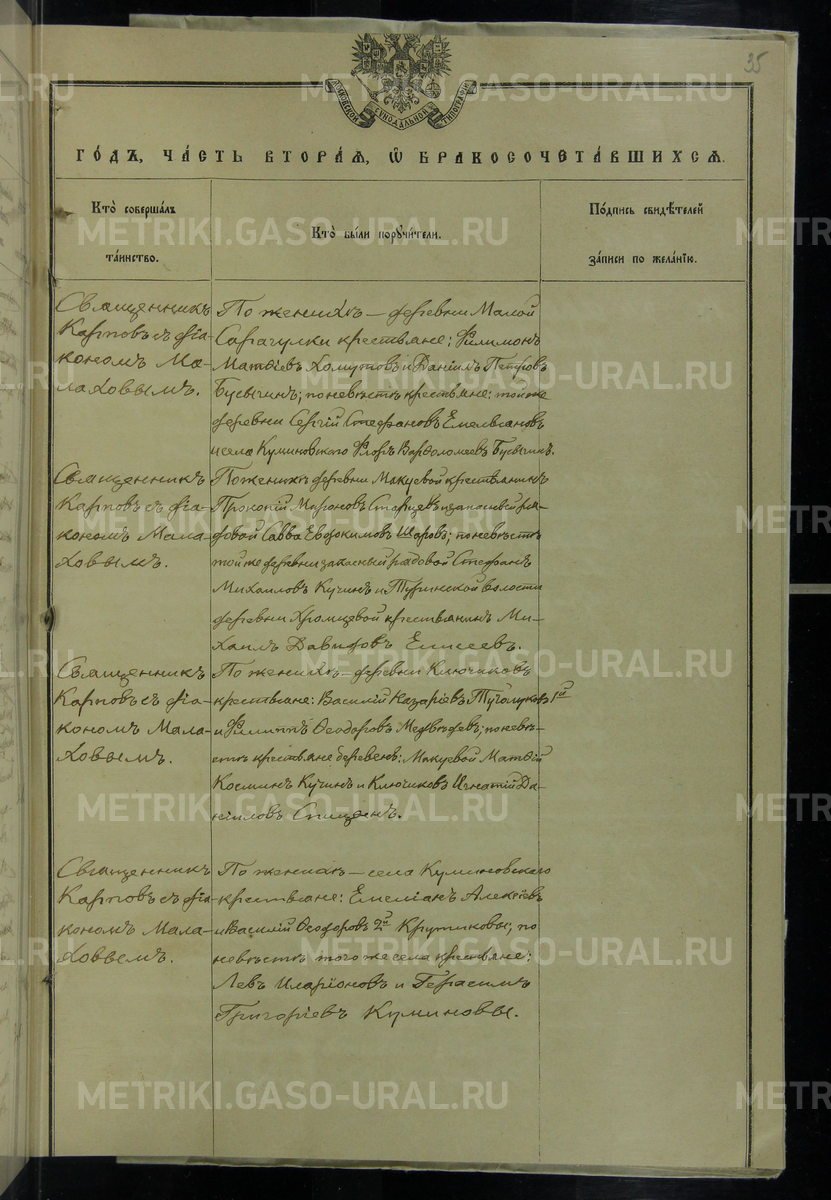 35
МОСКОВСКОЙ СѴНОДАЛЬНОЙ ТИПОГРАФІИ
ГО́ДЪ, ЧА́СТЬ ВТОРА́Я, Ѡ҆ БРАКОСОЧЕТА́ВШИХСЯ.
Кто̀ соверша́лъ
та́инство.
Кто̀ бы́ли поручи́тели.
По́дпись свидѣ́телей
за́писи по жела́нію.
Священникъ
Карповъ съ діа-
кономъ Ма-
лаховымъ.
По женихѣ – деревни Малой
Сарагулки крестьяне: Филимонъ
Матвіевъ Хомутовъ и Даніилъ Петровъ
Бусыгинъ; по невѣстѣ крестьяне: той же
деревни Сергій Стефановъ Емельяновъ
и села Куминовскаго Флоръ Варѳоломеевъ Бусыгинъ.
Священникъ
Карповъ съ діа-
кономъ Мала-
ховымъ.
По женихѣ деревни Макуевой крестьянинъ
Прокопій Мироновъ Старцевъ и запасный ря-
довой Савва Евдокимовъ Шаровъ; по невѣстѣ
той же деревни запасный рядовой Стефанъ
Михаиловъ Кучинъ и Туринской волости
деревни Хромцевой крестьянинъ Ми-
хаилъ Давидовъ Елисеевъ.
Священникъ
Карповъ съ діа-
кономъ Мала-
ховымъ.
По женихѣ – деревни Ключиковъ
крестьяне: Василій Назаріевъ Туголуковъ 1й
и Филиппъ Ѳеодоровъ Медвѣдевъ; по невѣ-
стѣ крестьяне деревень: Макуевой Матвій
Космин Кучинъ и Ключиковъ Игнатій Да-
ніиловъ Спицынъ.
Священникъ
Карповъ съ діа-
кономъ Мала-
ховымъ.
По женихѣ – села Куминовскаго
крестьяне: Емеліанъ Алексіевъ
и Василій Ѳеодоровъ 2й Крутиковы; по
невѣстѣ того же села крестьяне:
Левъ Иларіоновъ и Герасимъ
Григоріевъ Куминовы.
METRIKI.GASO-URAL.RU